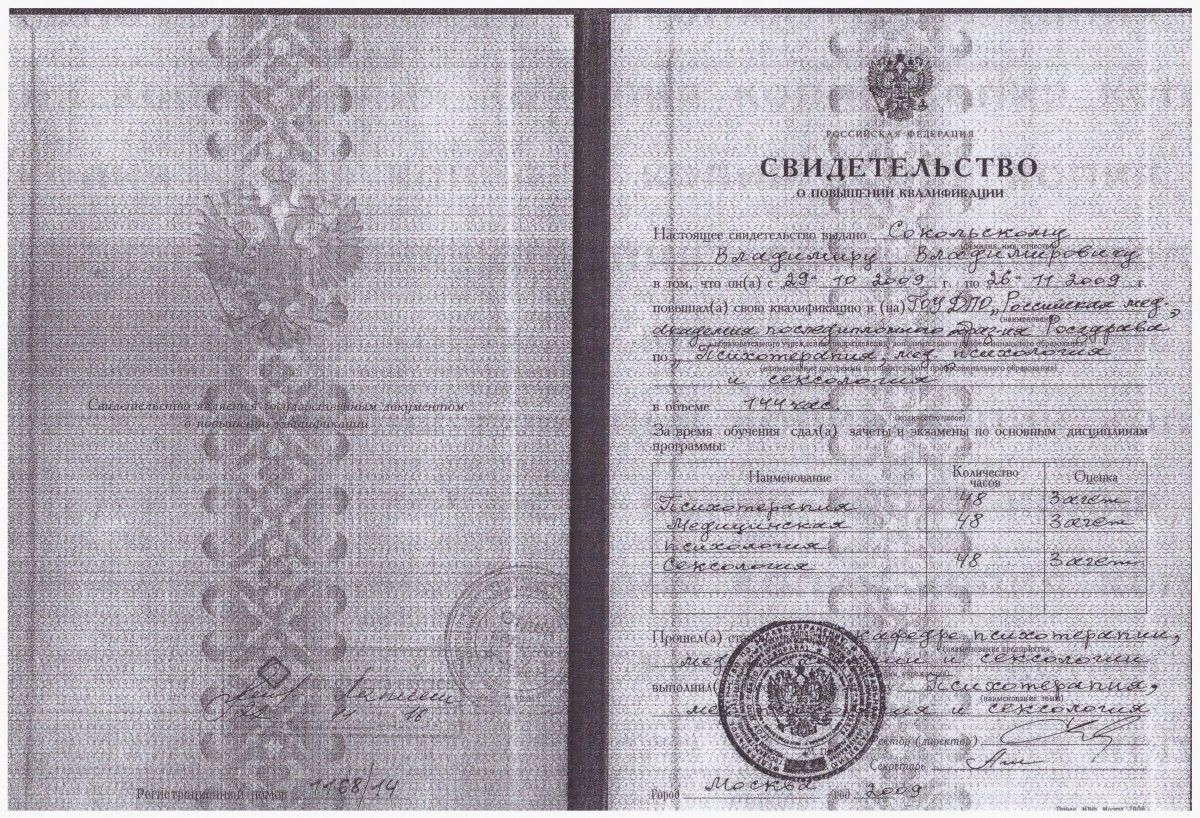 Свидетельство является государственным документом
о повышении квалификации
Регистрационный номер 1168/14
РОССИЙСКАЯ ФЕДЕРАЦИЯ
СВИДЕТЕЛЬСТВО
О ПОВЫШЕНИИ КВАЛИФИКАЦИИ
Настоящее свидетельство выдано Сокольскому
(фамилия, имя, отчество)
Владимиру Владимировичу
в том, что он(а) с „29“ 10 2009 г. по „26“ 11 2009 г.
повышал(а) свою квалификацию в (на) ГОУ ДПО „Российская мед.
(наименование
академия последипломного Росздрава
образовательного учреждения (подразделения) дополнительного профессионального образования)
по „Психотерапия, мед. психология
(наименование программы дополнительного профессионального образования)
и сексология
в объеме 144 час.
(количество часов)
За время обучения сдал(а) зачеты и экзамены по основным дисциплинам
программы:
Наименование Количество часов Оценка
Психотерапия 48 Зачет
Медицинская 48 Зачет
психология
Сексология 48 Зачет
Прошел(а) кафедре психотерапии,
(наименование предприятия,
мед. и сексологии
Психотерапия,
(наименование темы)
и сексология
(директор)
Секретарь
Город Москва год 2009